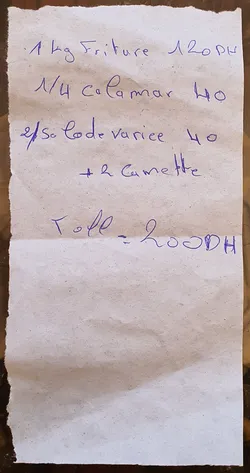 1 kg Friture 120 DH
1/4 calamar 40
2/Salode varice 40
+ 2 Camette
Totl
= 200DH